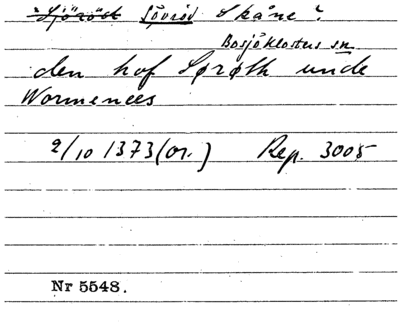 Sjöröst Sövröd Skåne?
Bosjöklosters sn.
den hof Sørøth unde
Wormenees
2/10 1373 (or.) Rep. 3005
Nr 5548.